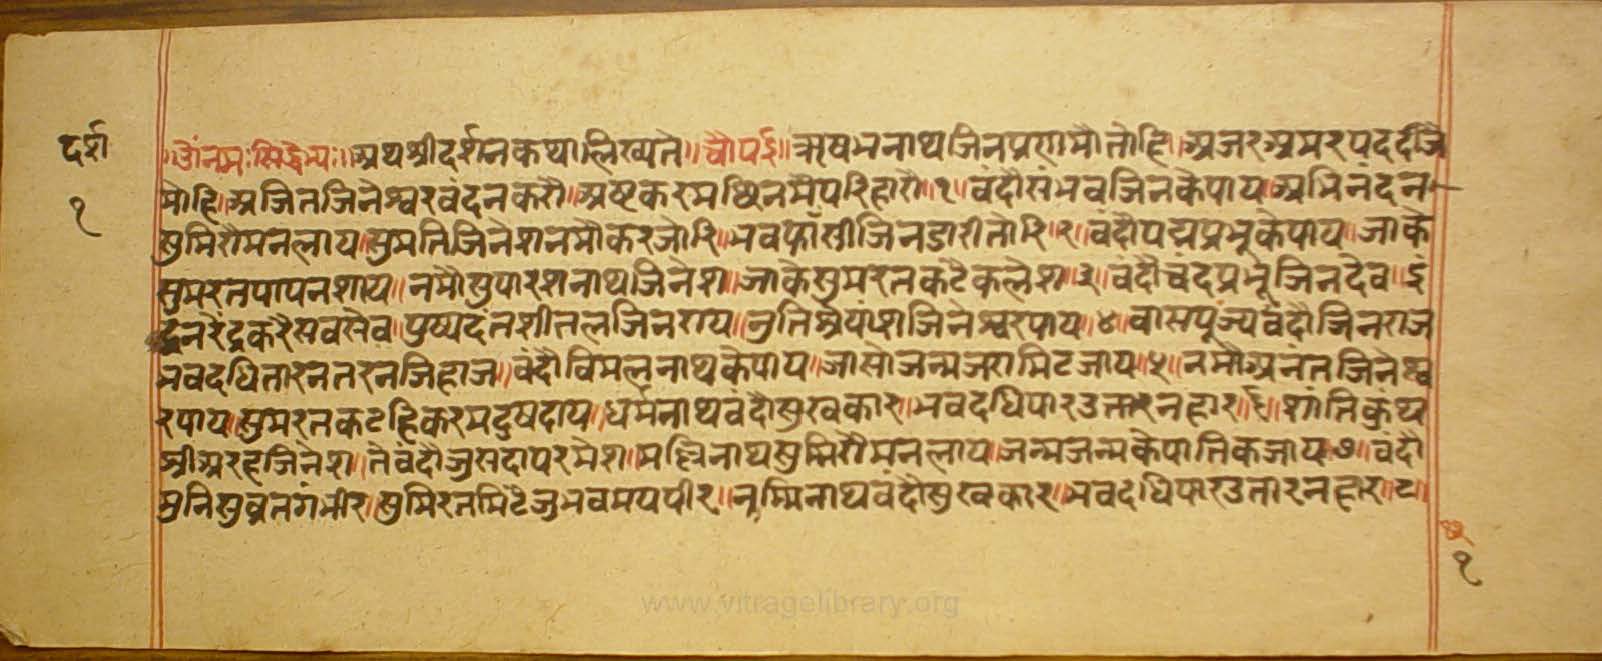 दर्श
१
।ॐनमःसिद्धेभ्यः।अथश्रीदर्शनकथालिख्यते॥चौपई॥ऋषभनाथजिनप्रणमौतोहि।अजरअमरपददीजै
मोहि।अजितजिनेश्वरवंदनकरौ॥अष्टकरमछिनमैपरिहारौ॥१॥वंदौसंभवजिनकेपाय।अभिनंदन
सुमिरौमनलाय॥सुमतिजिनेशनमौकरजोरि॥भवफांसीजिनडारीतोरि॥२॥वंदौपद्मप्रभुकेपाय॥जाके
सुमरतपापनशाय॥नमौसुपारशनाथजिनेश॥जाकेसुमरतकटैकलेश॥३॥वंदौचंदप्रभूजिनदेव॥इं
द्रनरेंद्रकरैसवसेव॥पुष्पदंतशीतलजिनराय॥नुतिश्रेयंशजिनेश्वरपाय॥४॥वासपूज्यवंदौजिनराज
भवदधितारनतरनजिहाज॥वंदौविमलनाथकेपाय॥जासोजन्मजरामिटजाय॥५॥नमौअनंतजिनेश्व
रपाय॥सुमरतकटहिकरमदुषदाय॥धर्मनाथवंदौसुखकार॥भवदधिपारउतारनहार॥६॥शांतिकुंथ
श्रीअरहजिनेश॥तेवंदौजुसदापरमेश॥मल्लिनाथसुमिरौमनलाय॥जन्मजन्मकेपातिकजाय॥७॥वंदौ
मुनिसुव्रतगंभीर॥सुमिरतमिटैजुभवभयपीर॥नम्मिनाथवंदौसुखकार॥भवदधिपारउतारनहार॥८॥
१
www.vitragelibrary.org